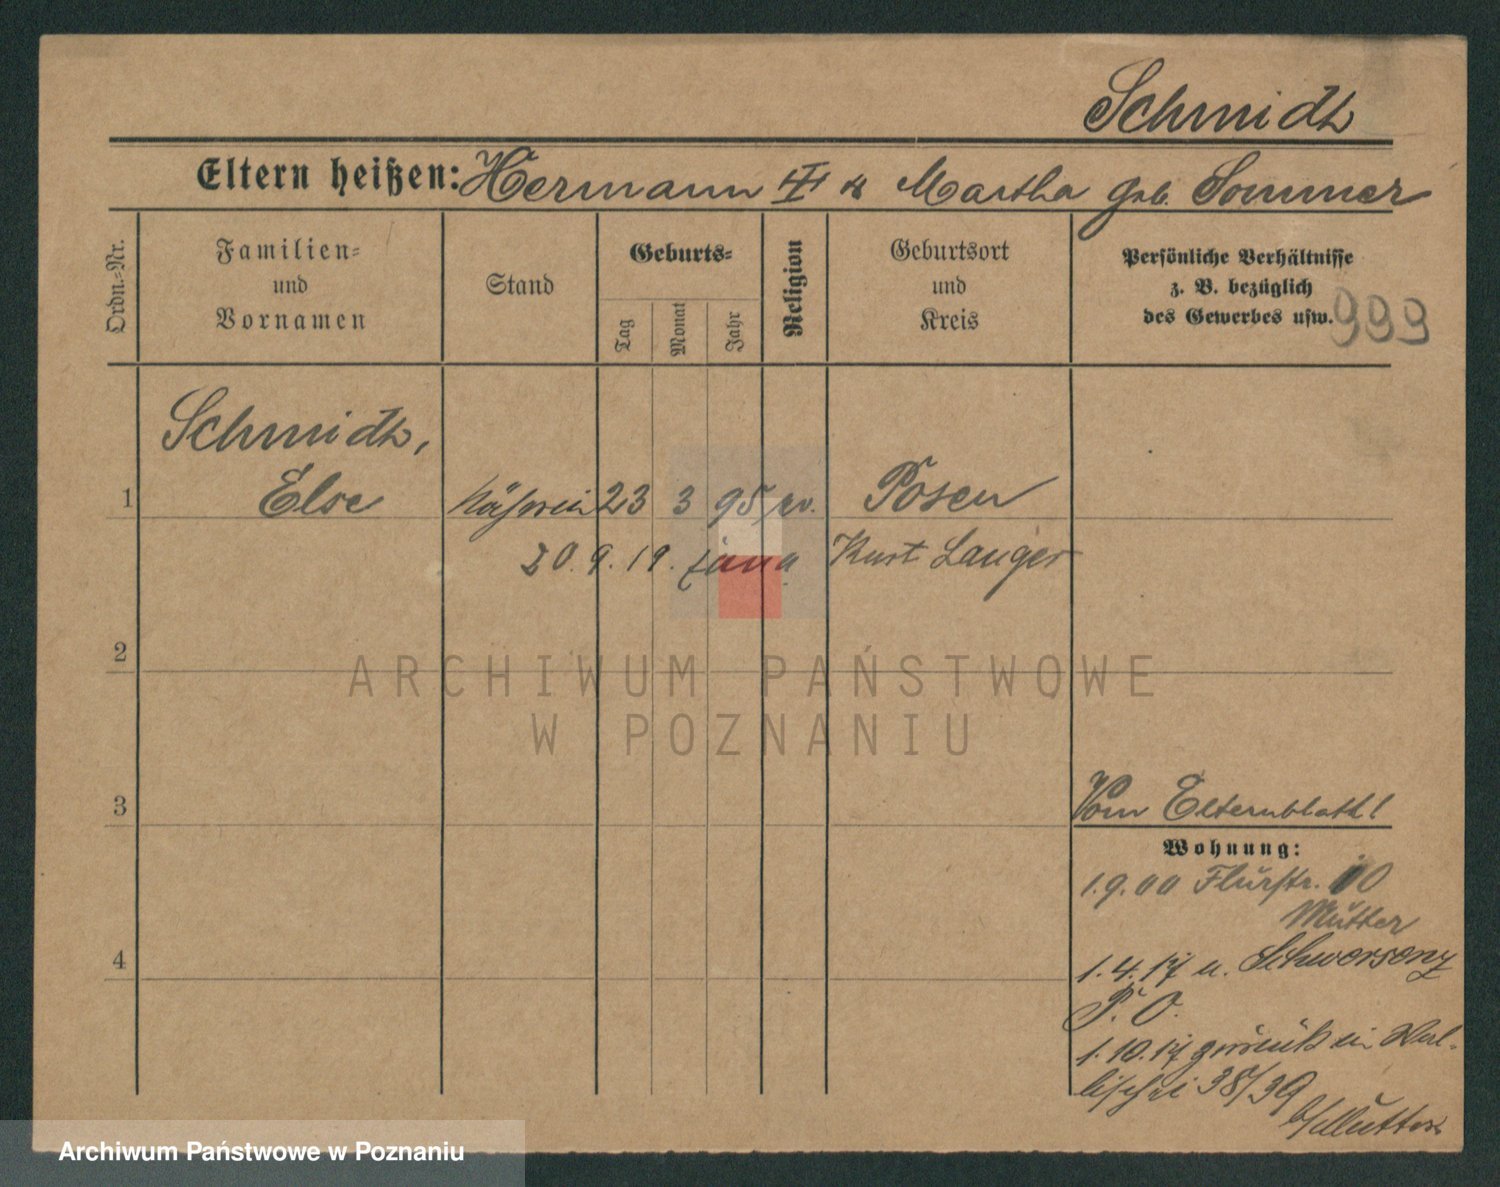 Schmidt
Eltern heißen: Hermann III u Martha geb. Sommer
Ordn.-Nr.
Familien-
und
Vornamen
Stand
Geburts-
Tag
Monat
Jahr
Religion
Geburtsort
und
Kreis
Persönliche Verhältnisse
z. B. bezüglich
des Gewerbes usw.
999
Schmidt,
1 Else Näherin 23 3 95 ev. Posen
20. 9. 19. Kurt Langer
2
ARCHIWUM PAŃSTWOWE
W POZNANIU
3
Vom Elternblatt!
Wohnung:
1.9.00 Flurstr. 10
Mutter
4
1.4.17 n. Schwersenz
P. O.
1.10.17 zurück in Wal-
lischei 38/39
b/Mutter
Archiwum Państwowe w Poznaniu